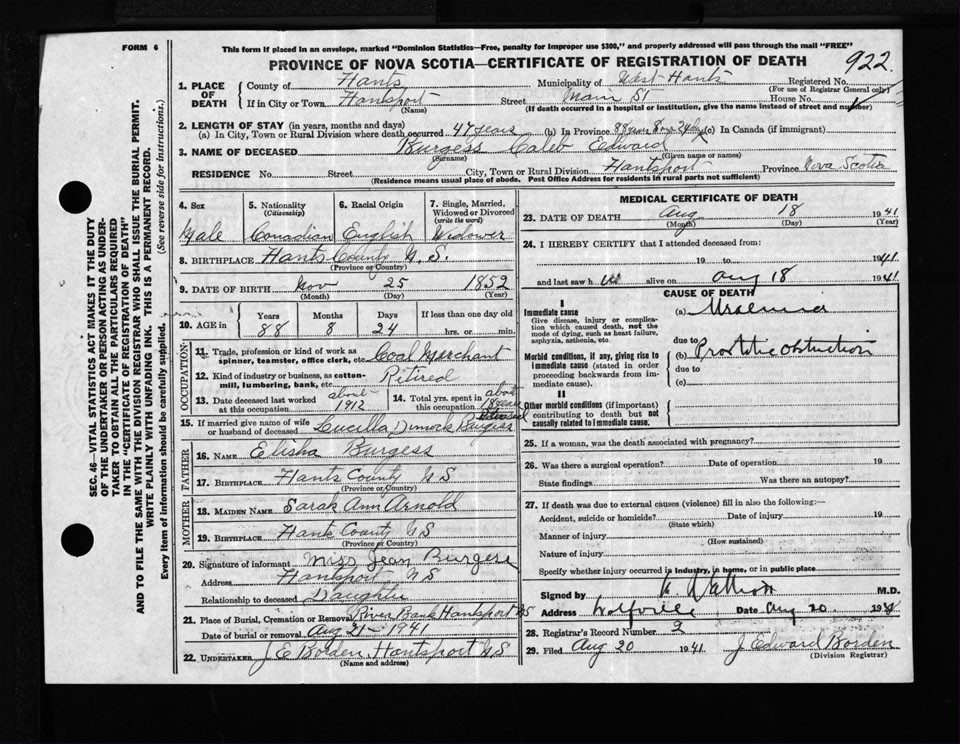 FORM 6
This form if placed in an envelope, marked "Dominion Statistics—Free, penalty for improper use $300," and properly addressed will pass through the mail "FREE"
PROVINCE OF NOVA SCOTIA—CERTIFICATE OF REGISTRATION OF DEATH 922
SEC. 46—VITAL STATISTICS ACT MAKES IT THE DUTY
OF THE UNDERTAKER OR PERSON ACTING AS UNDER-
TAKER TO OBTAIN ALL THE PARTICULARS REQUIRED
IN THE "CERTIFICATE OF REGISTRATION OF DEATH"
AND TO FILE THE SAME WITH THE DIVISION REGISTRAR WHO SHALL ISSUE THE BURIAL PERMIT.
WRITE PLAINLY WITH UNFADING INK. THIS IS A PERMANENT RECORD.
Every item of information should be carefully supplied. (See reverse side for instructions.)
1. PLACE OF DEATH
County of Hants Municipality of West Hants Registered No.
(For use of Registrar General only)
If in City or Town Hantsport Street Main St House No.
(Name) (If death occurred in a hospital or institution, give the name instead of street and number)
2. LENGTH OF STAY (in years, months and days)
(a) In City, Town or Rural Division where death occurred 47 years (b) In Province 88 years 8 mos 24 days (c) In Canada (if immigrant)
3. NAME OF DECEASED Burgess Caleb Edward
(Surname) (Given name or names)
RESIDENCE No. Street City, Town or Rural Division Hantsport Province Nova Scotia
(Residence means usual place of abode. Post Office Address for residents in rural parts not sufficient)
4. Sex 5. Nationality (Citizenship) 6. Racial Origin 7. Single, Married, Widowed or Divorced (write the word)
Male Canadian English Widower
8. BIRTHPLACE Hants County N.S.
(Province or Country)
9. DATE OF BIRTH Nov 25 1852
(Month) (Day) (Year)
10. AGE in Years Months Days If less than one day old
88 8 24 hrs. or min.
OCCUPATION
11. Trade, profession or kind of work as spinner, teamster, office clerk, etc. Coal Merchant
12. Kind of industry or business, as cotton-mill, lumbering, bank, etc. Retired
13. Date deceased last worked at this occupation about 1912
14. Total yrs. spent in this occupation about 18 years
15. If married give name of wife or husband of deceased Lucilla Dimock Burgess Deceased
FATHER
16. NAME Elisha Burgess
17. BIRTHPLACE Hants County N S
(Province or Country)
MOTHER
18. MAIDEN NAME Sarah Ann Arnold
19. BIRTHPLACE Hants County N S
(Province or Country)
20. Signature of informant Miss Jean Burgess
Address Hantsport N S
Relationship to deceased Daughter
21. Place of Burial, Cremation or Removal River Bank Hantsport N S
Date of burial or removal Aug 21 - 1941
22. UNDERTAKER J E Borden, Hantsport N S
(Name and address)
MEDICAL CERTIFICATE OF DEATH
23. DATE OF DEATH Aug 18 1941
(Month) (Day) (Year)
24. I HEREBY CERTIFY that I attended deceased from:
19 to 1941
and last saw h alive on Aug 18 1941
CAUSE OF DEATH
I
Immediate cause
Give disease, injury or complication which caused death, not the mode of dying, such as heart failure, asphyxia, asthenia, etc.
(a) Uraemia
due to
Morbid conditions, if any, giving rise to immediate cause (stated in order proceeding backwards from immediate cause).
(b) Prostatic obstruction
due to
(c)
II
Other morbid conditions (if important) contributing to death but not causally related to immediate cause.
25. If a woman, was the death associated with pregnancy?
26. Was there a surgical operation? Date of operation 19
State findings Was there an autopsy?
27. If death was due to external causes (violence) fill in also the following:—
Accident, suicide or homicide? Date of injury 19
(State which)
Manner of injury
(How sustained)
Nature of injury
Specify whether injury occurred in industry, in home, or in public place
Signed by M.D.
Address Wolfville Date Aug 20 19
28. Registrar's Record Number 9
29. Filed Aug 20 1941 J Edward Borden
(Division Registrar)